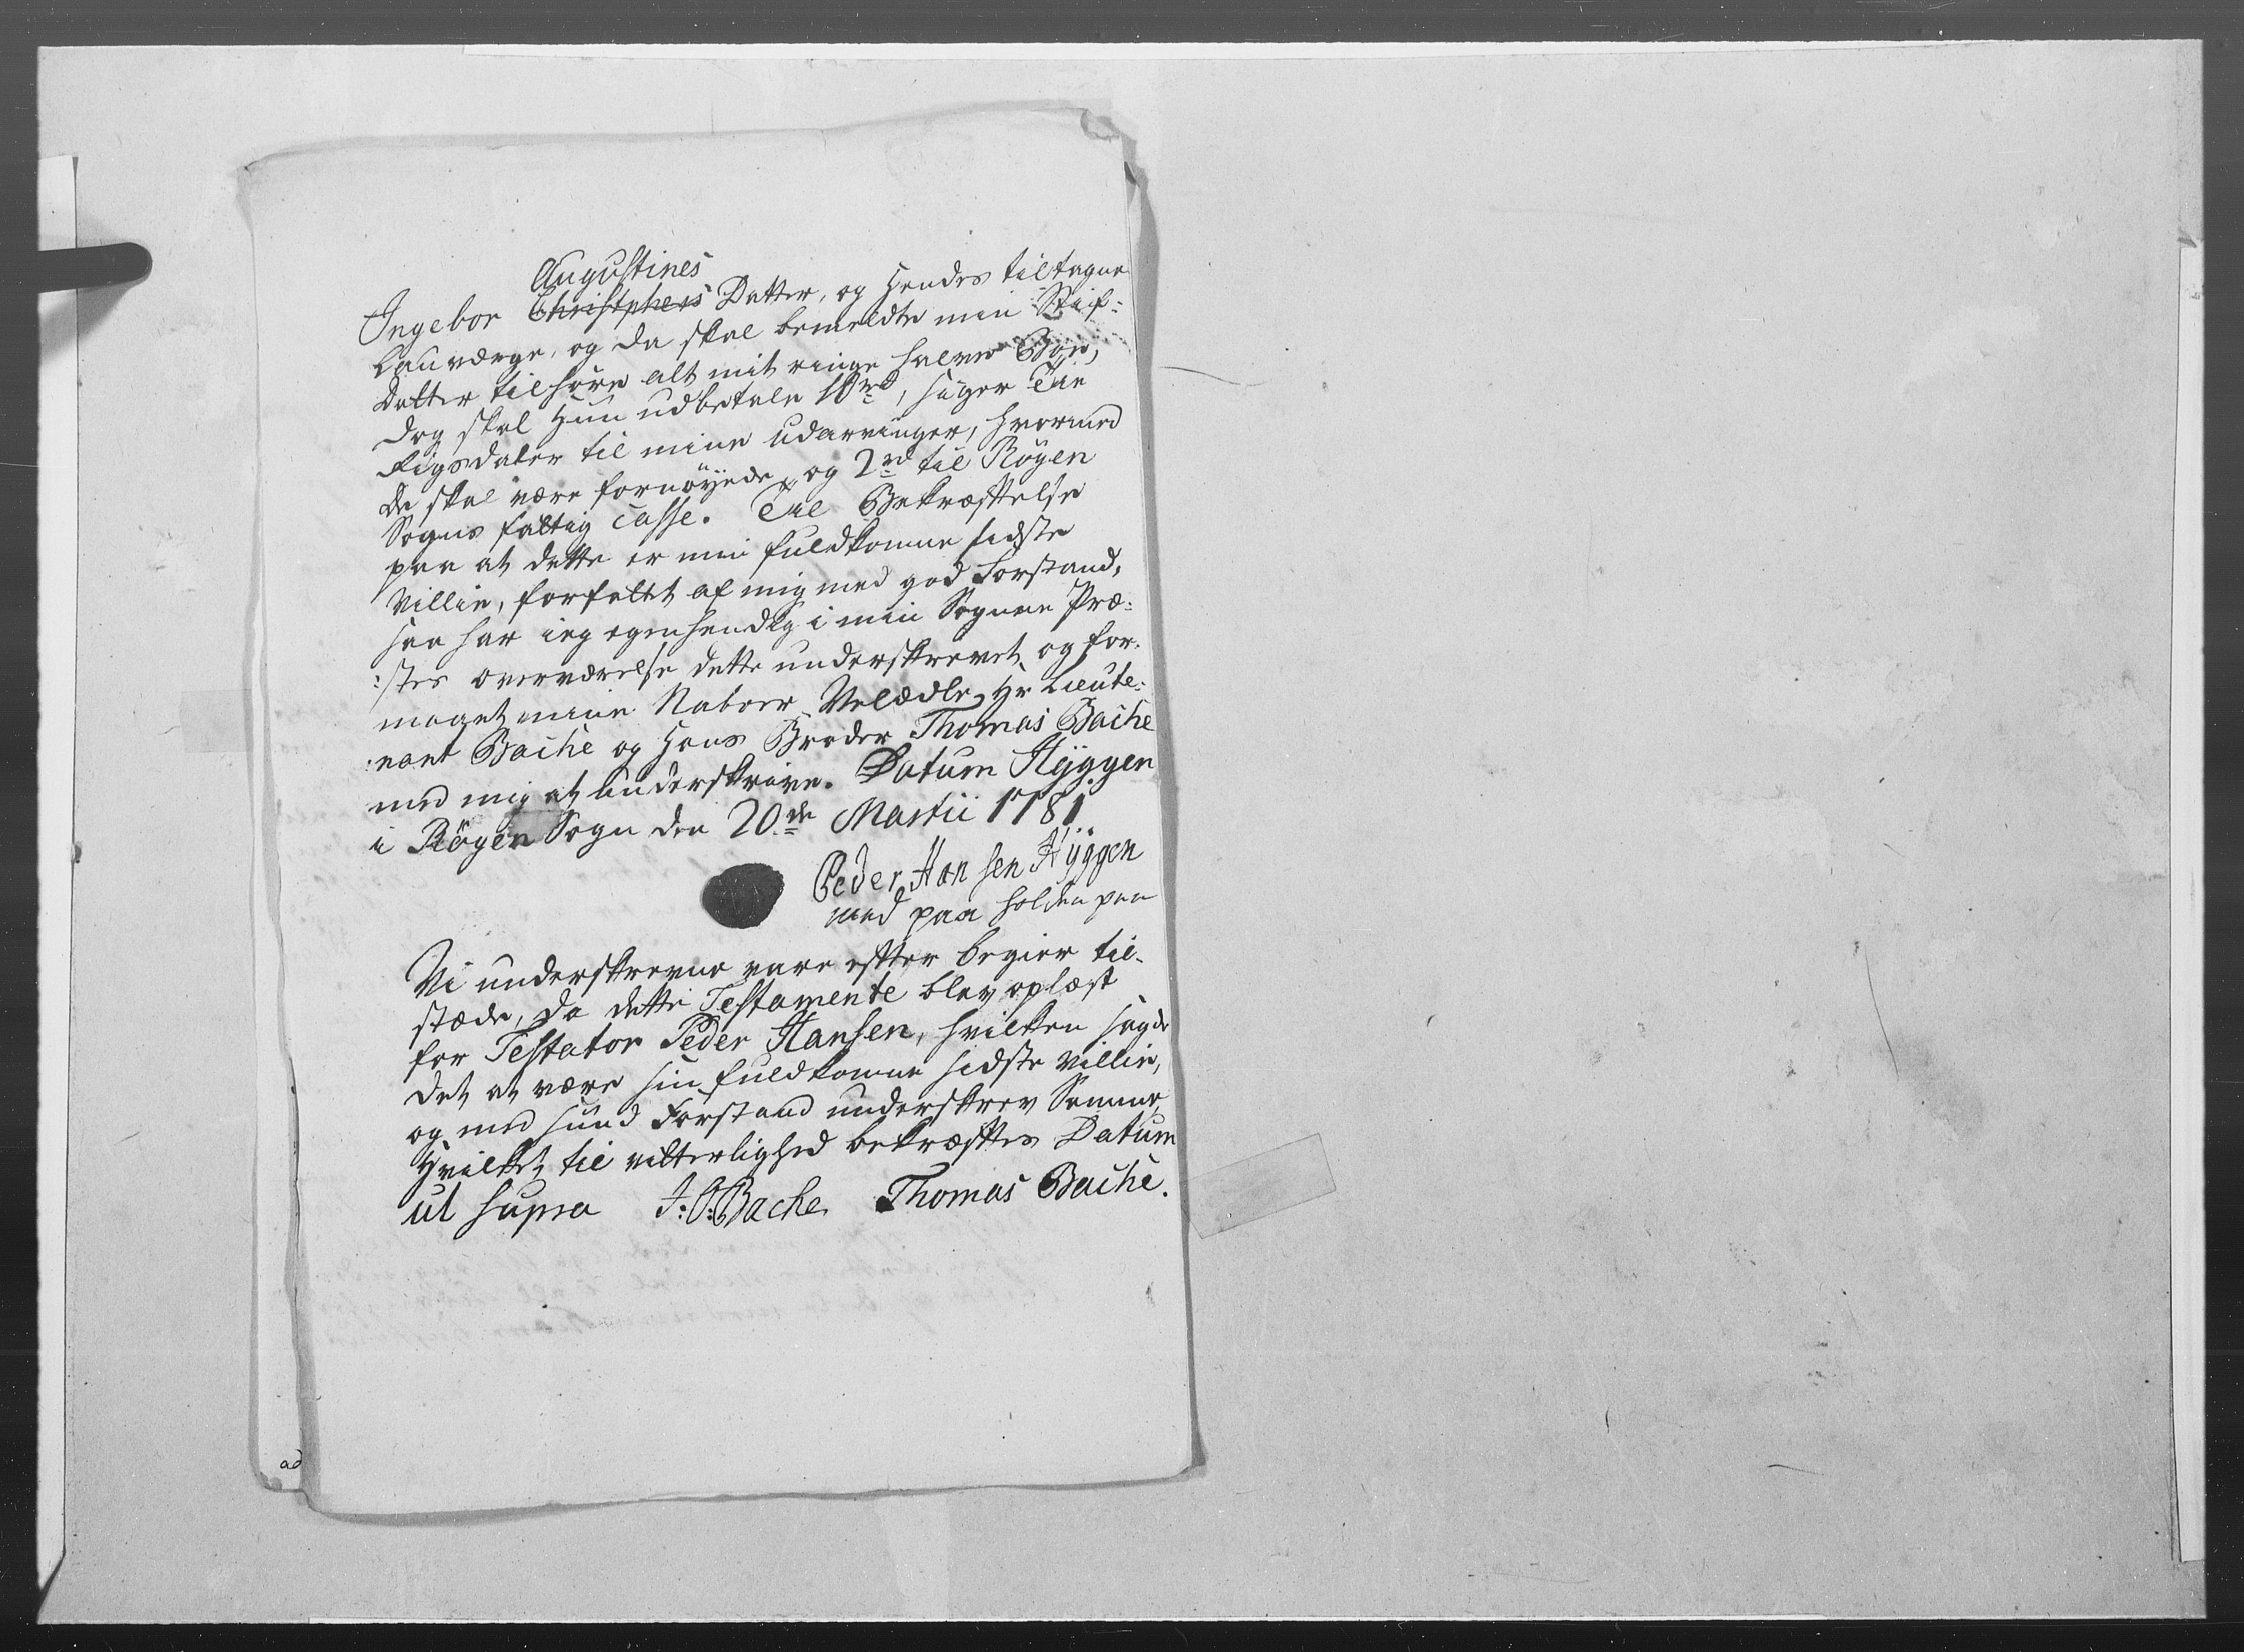 Augustines
Ingebor Christphers Datter, og Hendes tiltagne
Lauværge, og da skal bemeldte min Stif:
datter tilhøre alt mit ringe halve Boe,
dog skal Hun udbetale 10rd, siger Tie
Rigsdaler til mine udarvinger, hvormed
de skal være fornöyede, og 2rd til Röyen
Sogns fattig Casse. Til Bekræftelse
paa at dette er min fuldkomne sidste
Villie, forfattet af mig med god Forstand,
saa har ieg egenhendig i min Sogne Præ:
:stes overværelse dette underskrevet, og for:
maaet mine Naboer Velædle Hr Lieute:
:nant Bache og Hans Broder Thomas Bache
med mig at underskrive. Datum Hÿggen
i Röyen Sogn den 20de Martii 1781.
Peder Hansen Hÿggen
med paa holden pen
Vi underskrevne vare efter begier til-
stæde, da dette Testamente blev oplæst
for Testator Peder Hansen, hvilken sagde
det at være sin fuldkomne sidste Villie,
og med sund Forstand underskrev Samme,
Hvilket til vitterlighed bekræftes Datum
ut supra J: O: Bache Thomas Bache.
ad